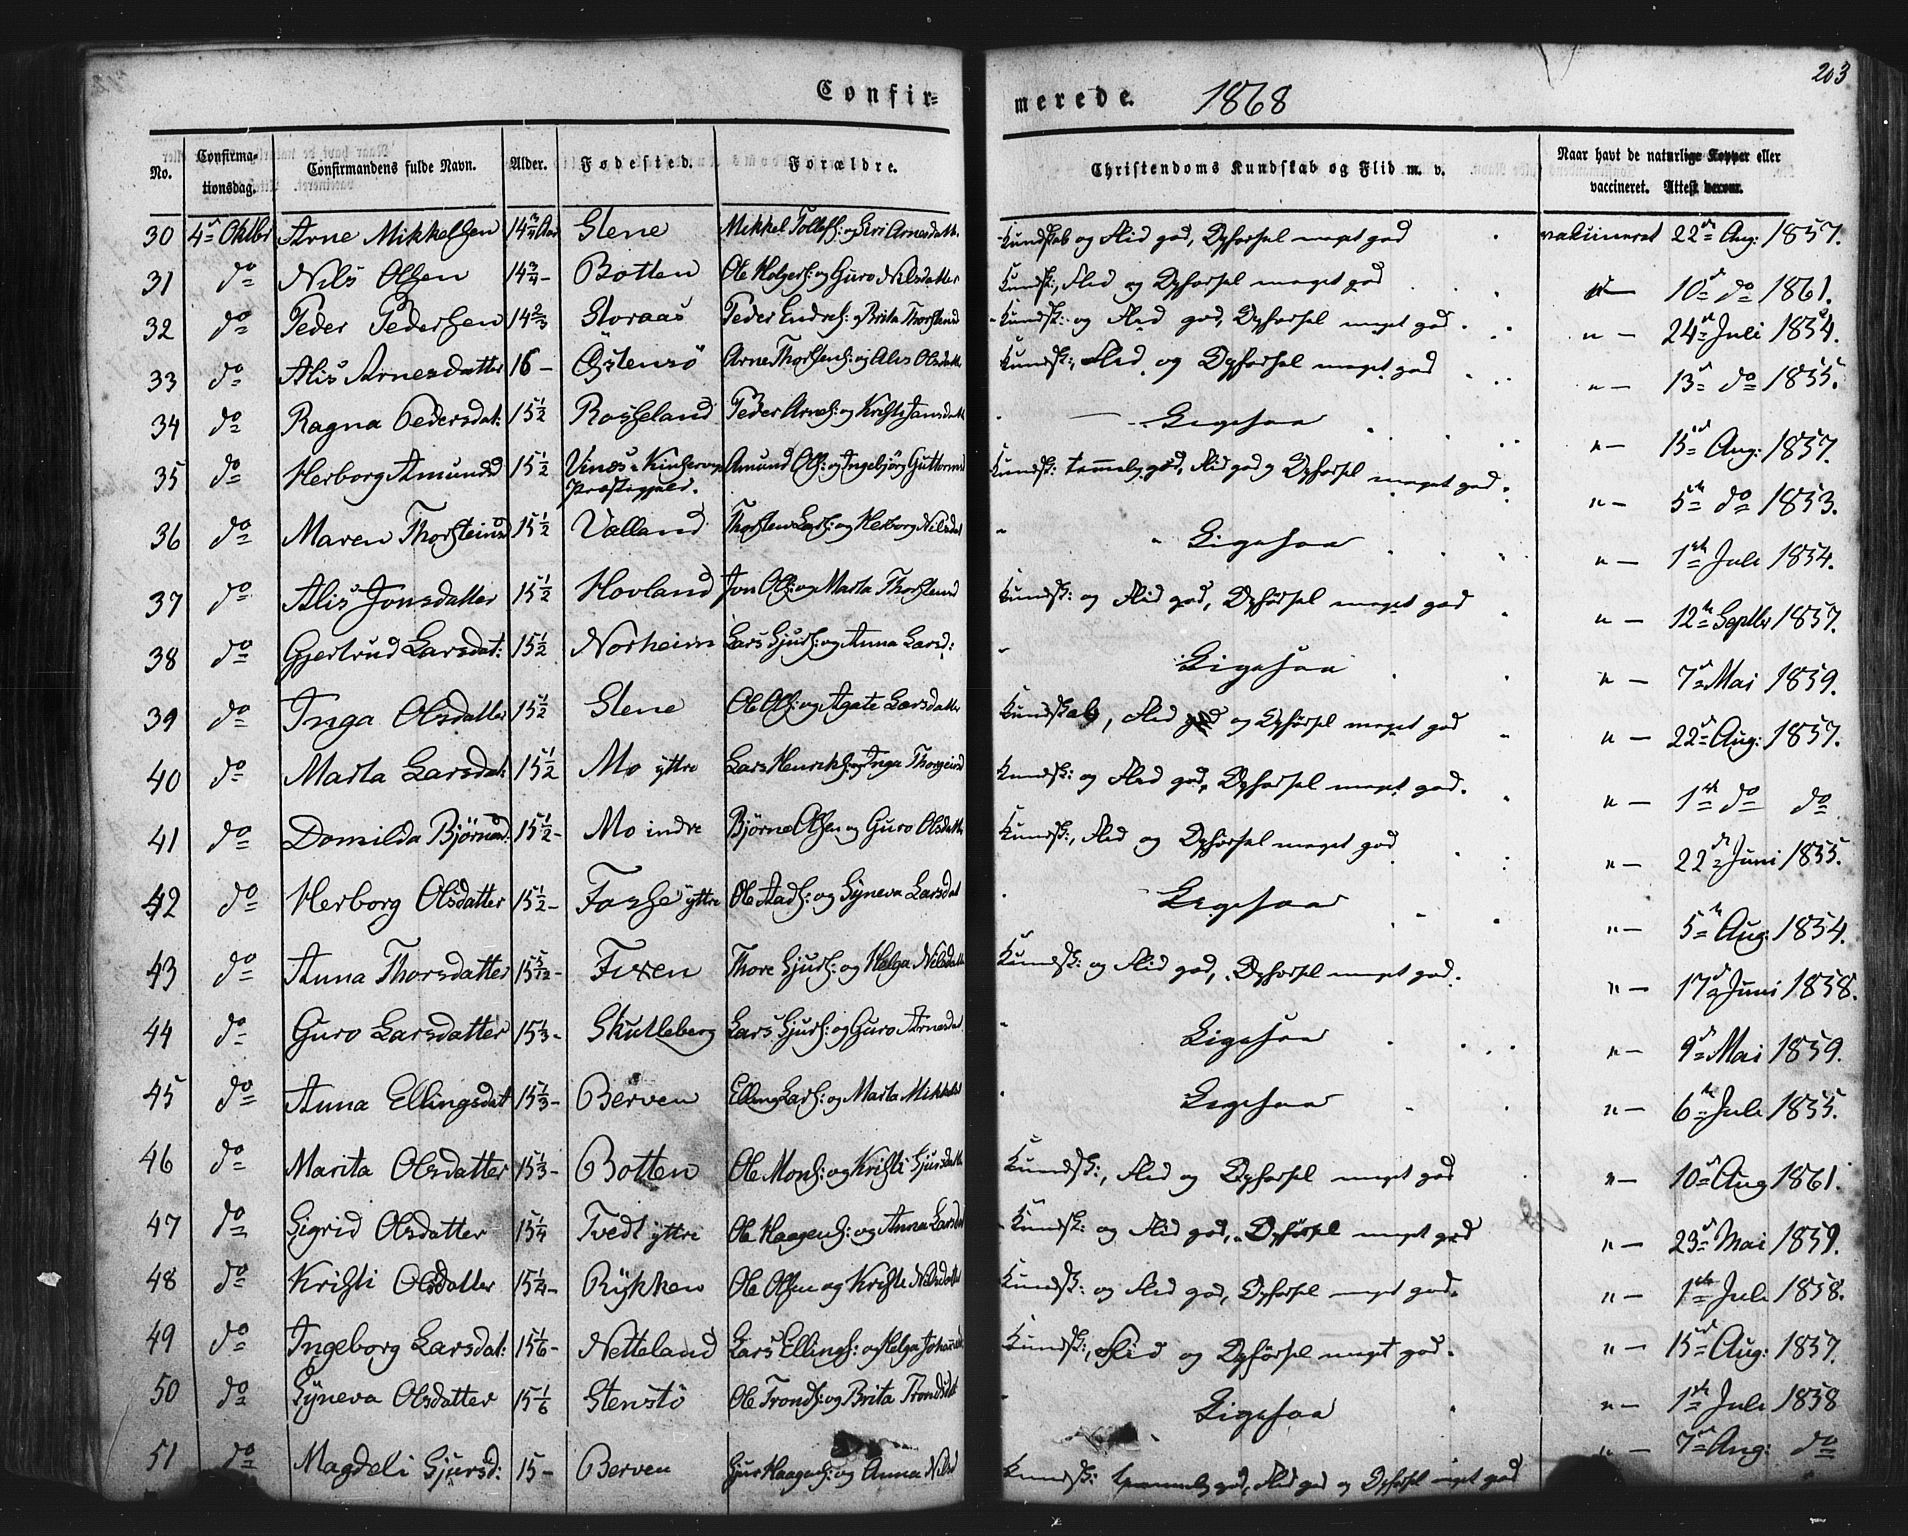 203
Confir= merede. 1868
No. Confirma-tionsdag. Confirmandens fulde Navn. Alder. Fødested. Forældre. Christendoms Kundskab og Flid m. v. Naar havt de naturlige Kopper eller vaccineret. Attest derom.
30 4de Oktbr Arne Mikkelsen 14 3/4 Aar Stene Mikkel Tollefs: og Siri Arnesdatt. Kundskab og Flid god, Opførsel meget god vakcineret 22de Aug: 1857.
31 do Nils Olsen 14 3/4 - Botten Ole Holgers: og Guro Nilsdatter Kundsk:, Flid og Opførsel meget god " — 10de do 1861.
32 do Peder Pedersen 14 2/3 Storaas Peder Endres: og Brita Thorsteind Kundsk: og Flid god, Opførsel meget god. " — 24de Juli 1854.
33 do Alis Arnesdatter 16 — Östensö Arne Thorsteins: og Alis Olsdatt. Kundsk:, Flid og Opførsel meget god " — 13de do 1855.
34 do Ragna Pedersdat: 15 1/2 Rosseland Peder Arnes: og Kristi Jansdatt Ligesaa " — 15de Aug: 1857.
35 do Herborg Amunds 15 1/2 Vines - Kinservigs Præstegjeld. Amund Ols: og Ingebjörg Guttormsd Kundsk: temmelig god, Flid god og Opførsel meget god. " — 5te do 1853.
36 do Maren Thorsteinsd 15 1/2 Valland Thorstein Lars: og Herborg Nilsdat Ligesaa " — 1ste Juli 1854.
37 do Alis Jonsdatter 15 1/2 Hovland Jon Ols: og Marta Thorsteinsd Kundsk: og Flid god, Opførsel meget god " — 12te Septbr 1857.
38 do Gjertrud Larsdat: 15 1/2 Norheim Lars Sjurs: og Anna Larsd: Ligesaa " — 7de Mai 1859.
39 do Inga Olsdatter 15 1/2 Stene Ole Ols: og Agate Larsdatter Kundskab, Flid god og Opførsel meget god " — 22de Aug: 1857.
40 do Marta Larsdat: 15 1/2 Mo yttre Lars Henriks: og Inga Thorgeirsd Kundsk: og Flid god, Opførsel meget god. " — 1ste do do
41 do Domilda Björnsd: 15 1/2 - Mo indre Björne Olsen og Guro Olsdatt. Kundsk:, Flid og Opførsel meget god " — 22de Juni 1855.
42 do Herborg Olsdatter 15 1/2 - Fosse yttre Ole Aads: og Syneva Larsdat Ligesaa " — 5te Aug: 1854.
43 do Anna Thorsdatter 15 5/12 - Fixen Thore Sjurs: og Helga Nilsdatt Kundsk: og Flid god, Opførsel meget god. " — 17de Juni 1858.
44 do Guro Larsdatter 15 1/3 - Skutleberg Lars Sjurs: og Guro Arnesdat. Ligesaa " — 9de Mai 1859.
45 do Anna Ellingsdat 15 1/3 - Berven Elling Lars: og Marta Mikkelsd Ligesaa " — 6te Juli 1855.
46 do Marita Olsdatter 15 1/3 - Botten Ole Mons: og Kristi Sjursdatt Kundsk:, Flid og Opførsel meget god " — 10de Aug 1861.
47 do Sigrid Olsdatter 15 1/4 Tvedt yttre Ole Haagens: og Anna Larsdat Kundsk: og Flid god, Opførsel meget god " — 23de Mai 1859.
48 do Kristi Olsdatter 15 1/4 - Rykken Ole Olsen og Kristi Nilsdatter Kundsk: og Flid god, Opførsel meget god. " — 1ste Juli 1858.
49 do Ingeborg Larsdat: 15 1/6 - Netteland Lars Ellings: og Helga Johannesd Kundsk:, Flid og Opførsel meget god. " — 15de Aug: 1857.
50 do Syneva Olsdatter 15 1/6 Stenstö Ole Tronds: og Brita Trondsdat Ligesaa " — 1ste Juli 1858
51 do Magdeli Sjursd: 15 — Berven Sjur Haagens: og Anna Nilsd Kundsk: temmelig god, Flid god og Opførsel meget god " — 7de Aug: do